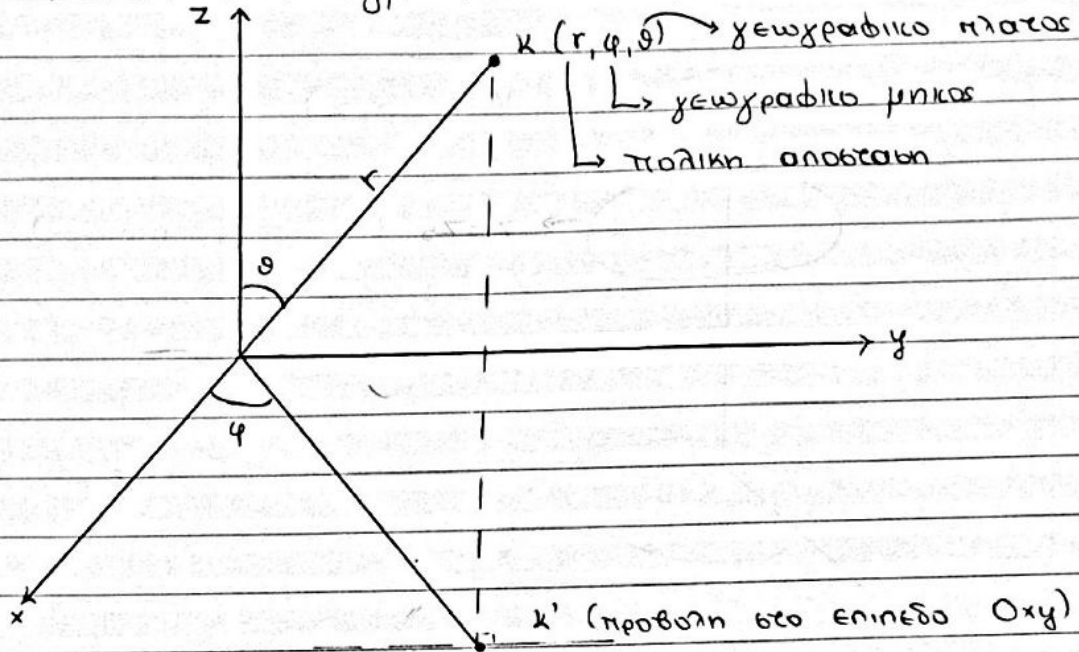 z
κ (r, φ, θ) → γεωγραφικο πλατος
↳ γεωγραφικο μηκος
↳ πολικη αποσταση
r
θ
y
φ
x
κ' (προβολη στο επιπεδο Oxy)